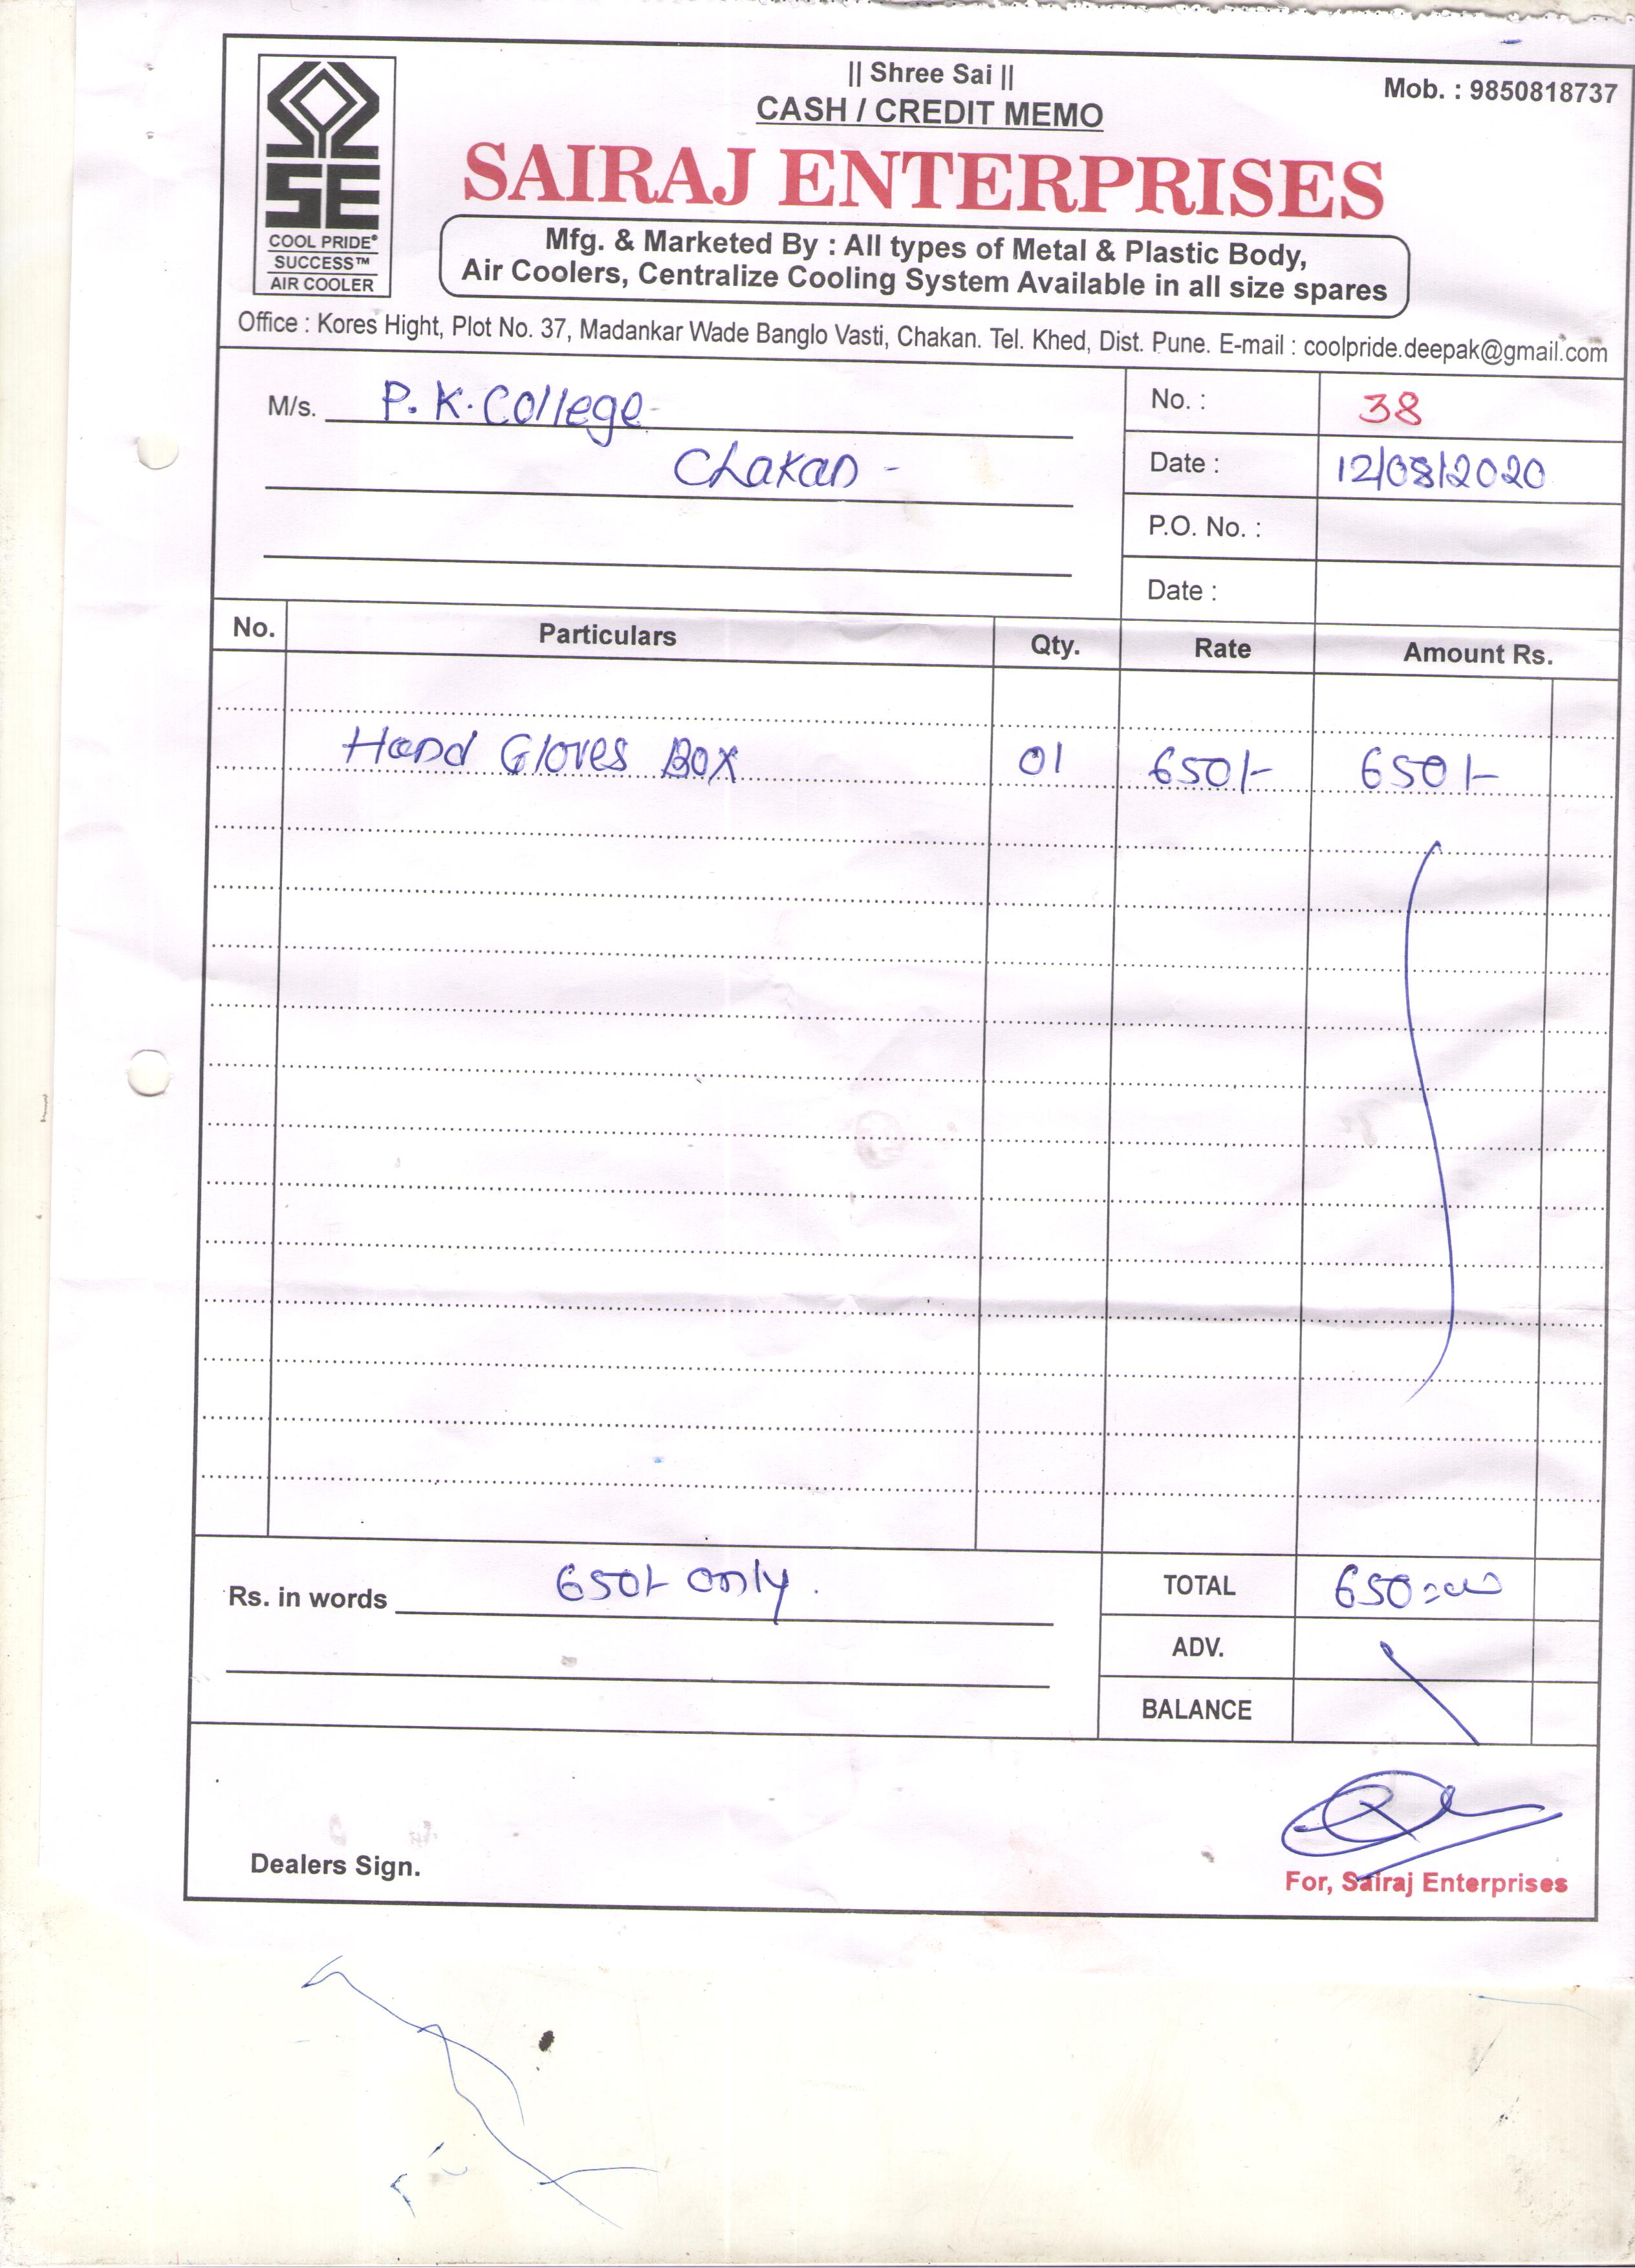 || Shree Sai ||
CASH / CREDIT MEMO
Mob. : 9850818737
SAIRAJ ENTERPRISES
SE
COOL PRIDE®
SUCCESS™
AIR COOLER
Mfg. & Marketed By : All types of Metal & Plastic Body,
Air Coolers, Centralize Cooling System Available in all size spares
Office : Kores Hight, Plot No. 37, Madankar Wade Banglo Vasti, Chakan. Tel. Khed, Dist. Pune. E-mail : coolpride.deepak@gmail.com
M/s. P. K. College
Chakan -
No. : 38
Date : 12/08/2020
P.O. No. :
Date :
No. Particulars Qty. Rate Amount Rs.
Hand Gloves Box 01 650/- 650/-
Rs. in words 650/- only.
TOTAL 650=00
ADV.
BALANCE
Dealers Sign.
For, Sairaj Enterprises